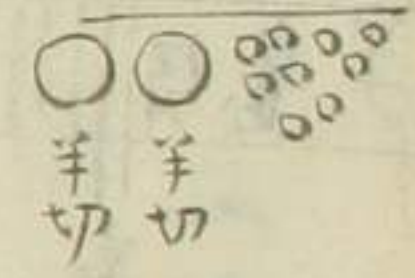 羊切
羊切